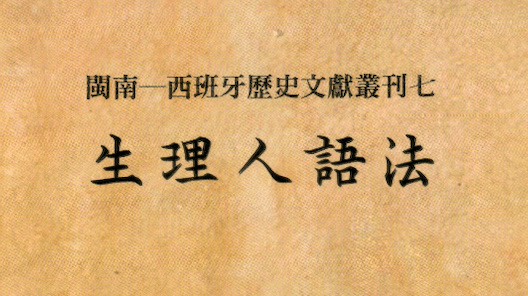 閩南—西班牙歷史文獻叢刊七
生理人語法